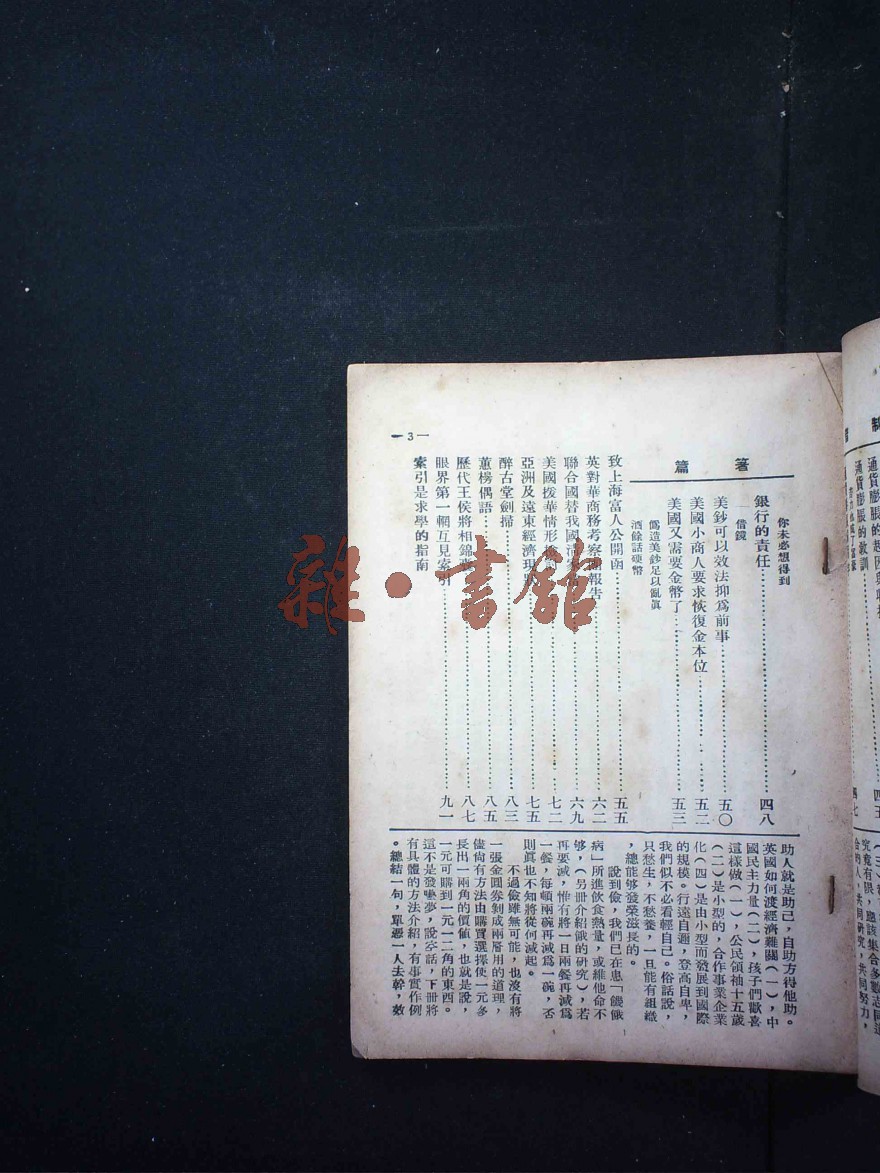 你未必想得到
銀行的責任……四八
借鏡
美鈔可以效法抑爲前事……五〇
美國小商人要求恢復金本位……五二
美國又需要金幣了……五三
僞造美鈔足以亂眞
酒餘話硬幣
箸篇
致上海富人公開函……五五
英對華商務考察團報告……六二
聯合國替我國清……六九
美國撥華情形……七二
亞洲及遠東經濟現……七五
醉古堂劍掃……八三
蕙櫋偶語……八五
歷代王侯將相錦……八七
眼界第一輯互見索引……九一
索引是求學的指南
—3—
助人就是助己,自助方得他助。
英國如何渡經濟難關(一),中
國民主力量(二),孩子們歡喜
這樣做(一),公民領袖十五歲
(二)是小型的,合作事業企業
化(四)是由小型而發展到國際
的規模。行遠自邇,登高自卑,
我們似不必看輕自己。俗話說,
只愁生,不愁養,一旦能有組織
,總能够發榮滋長的。
說到儉,我們已在患「饑餓
病」所進飲食熱量,或維他命不
够,(另冊介紹餓的研究),若
再要減,惟有將一日兩餐再減爲
一餐,每頓兩碗再減爲一碗,否
則眞也不知將從何減起。
不過儉雖無可能,也沒有將
一張金圓券剖成兩層用的道理,
儘尙有方法由購買選擇使一元多
長出一兩角的價値,也就是說,
一元可購到一元一二角的東西。
這不是發囈夢,說空話,下冊將
有具體的方法介紹,有事實作例
。總結一句,單憑一人去幹,效
通貨膨脹的起因與
通貨膨脹的教訓
四五
四七
究竟有限,應該集合多數志同道
合的人,共同研究,共同努力,
雜·書館